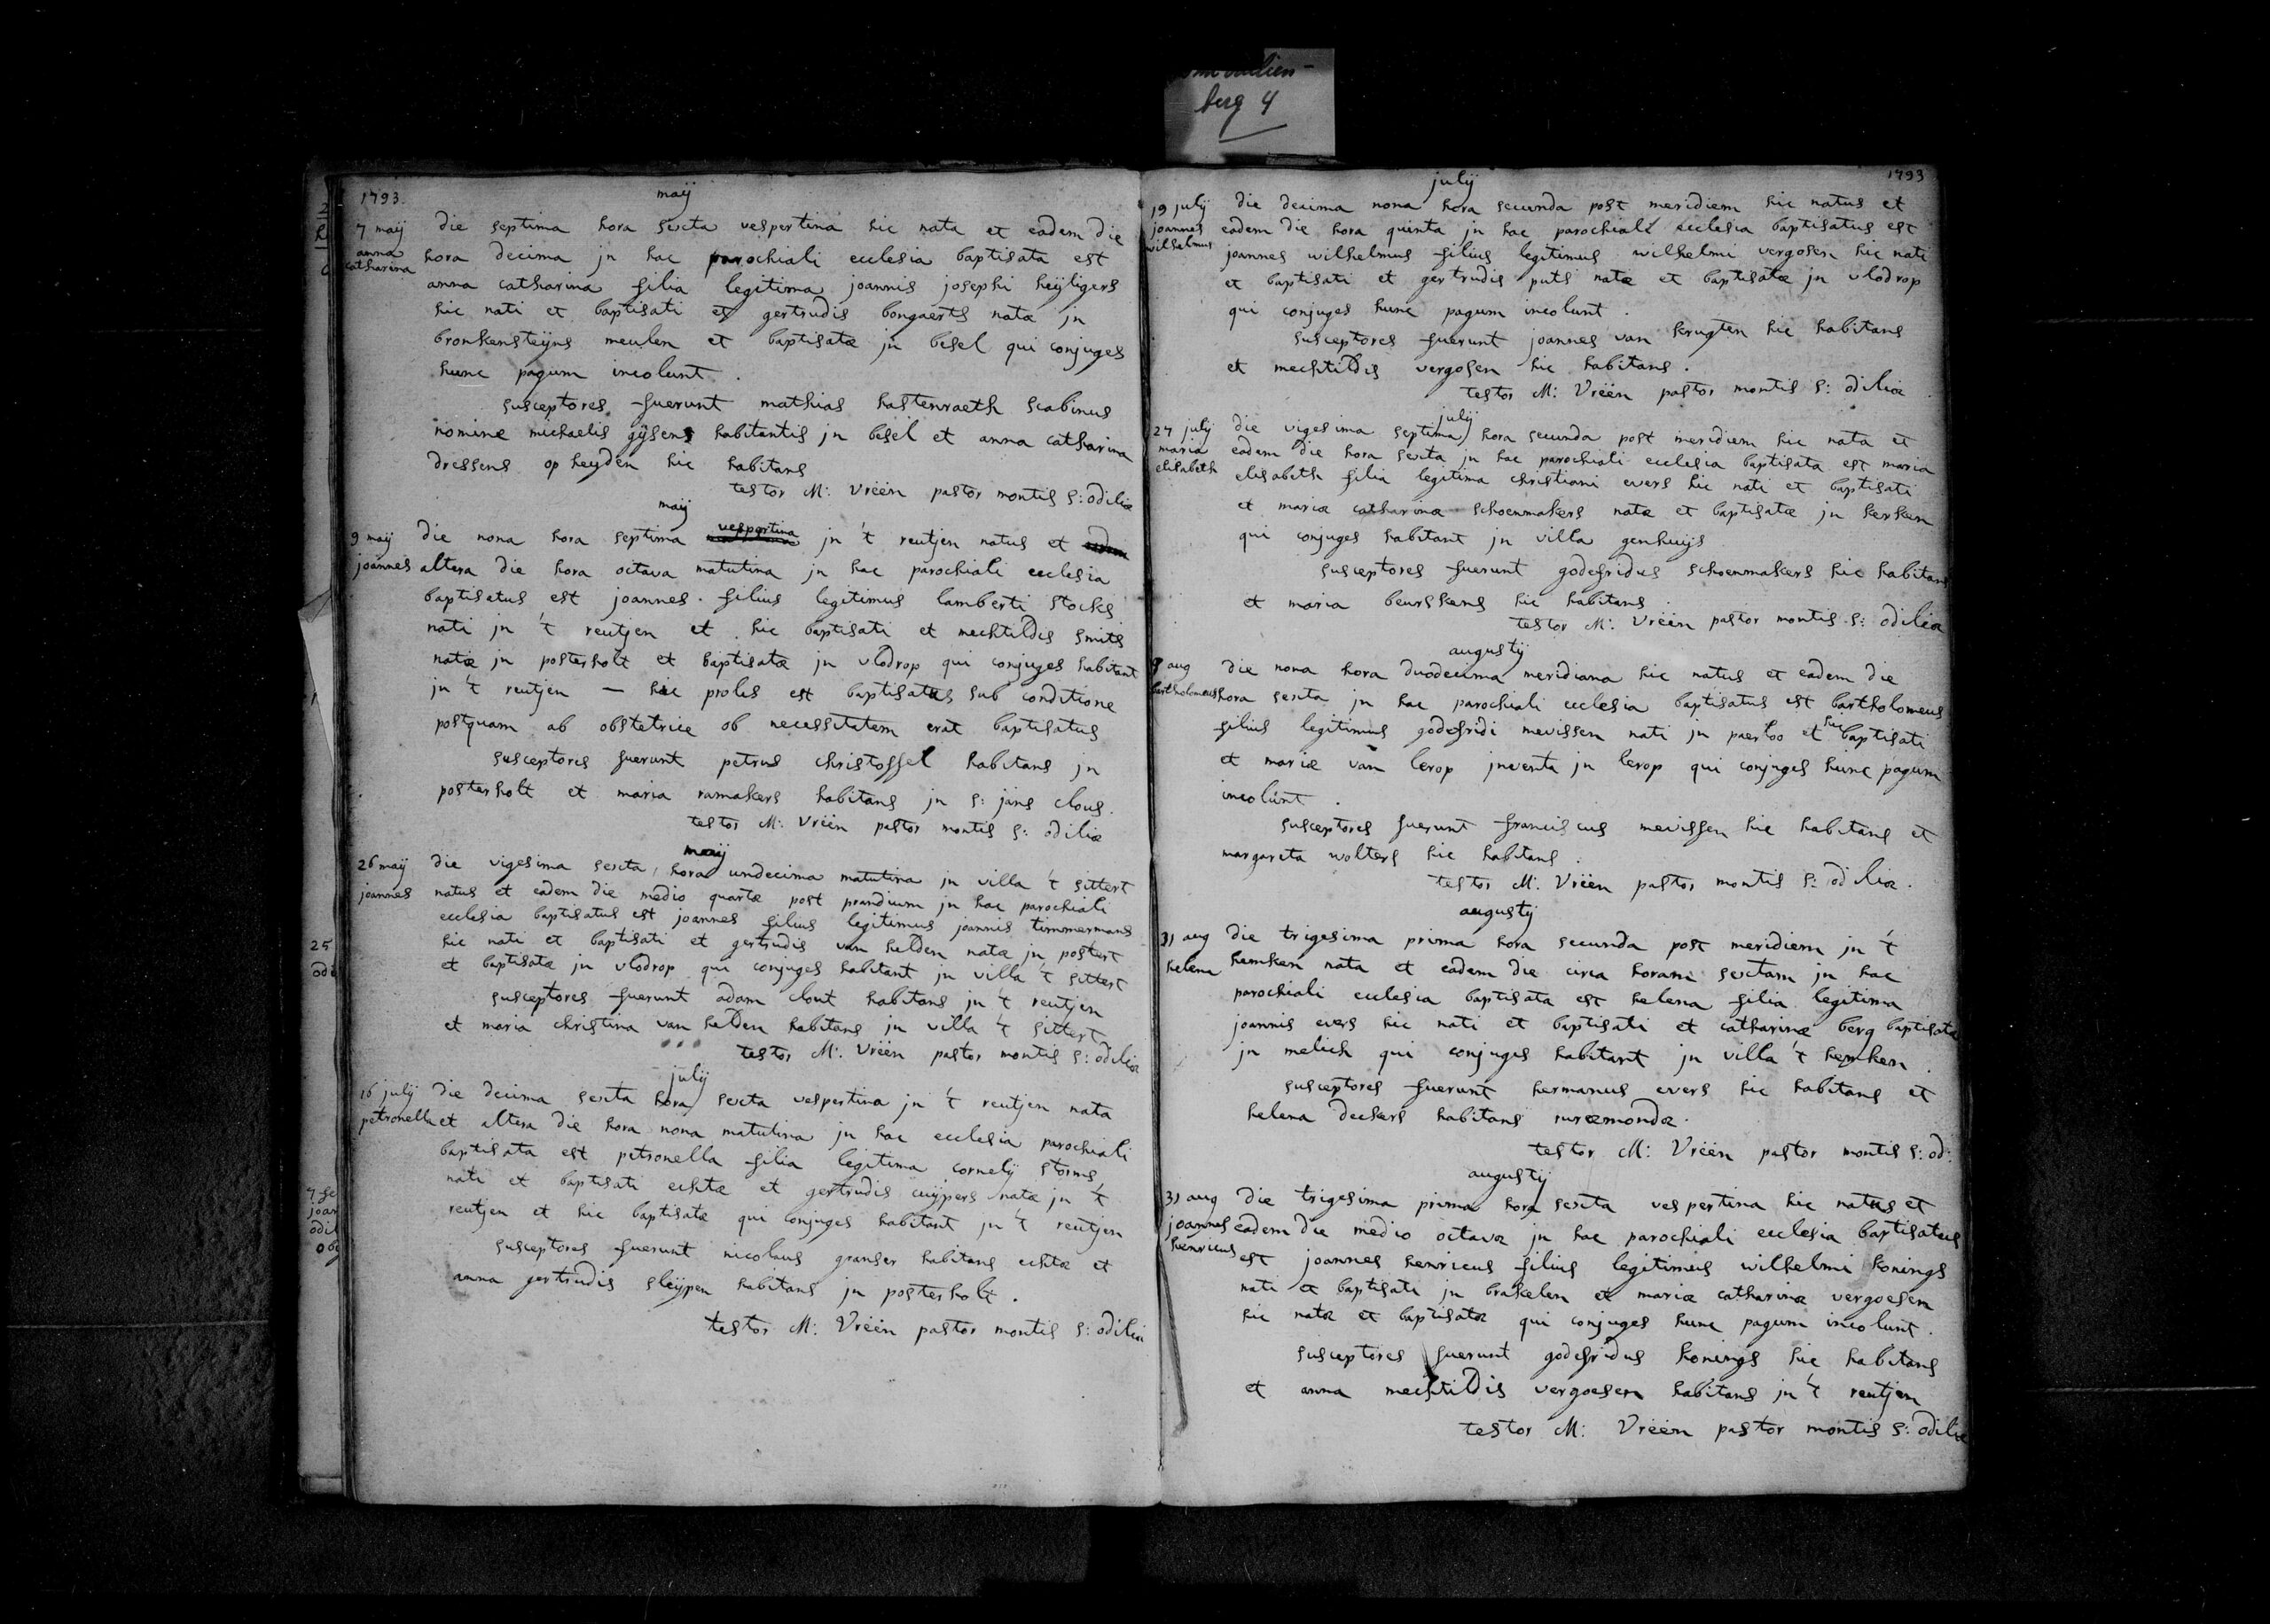 berg 4
1793.
maij
7 maij
anna
catharina
die septima hora sexta vespertina hic nata et eadem die
hora decima jn hac parochiali ecclesia baptisata est
anna catharina filia legitima joannis josephi heijligers
hic nati et baptisati et gertrudis bongaerts nata jn
bronkensteijns meulen et baptisatæ jn besel qui conjuges
hunc pagum incolunt.
susceptores fuerunt mathias hastenraeth scabinus
nomine michaelis gijsens habitantis jn besel et anna catharina
dressens op heyden hic habitans
testor M: Vrëën pastor montis s: odiliæ
maij
9 maij
joannes
die nona hora septima vespertina jn 't reutjen natus et
altera die hora octava matutina jn hac parochiali ecclesia
baptisatus est joannes filius legitimus lamberti stocks
nati jn 't reutjen et hic baptisati et mechtildis smits
natæ jn posterholt et baptisatæ jn vlodrop qui conjuges habitant
jn 't reutjen — hic proles est baptisatus sub conditione
postquam ab obstetrice ob necessitatem erat baptisatus
susceptores fuerunt petrus christoffel habitans jn
posterholt et maria ramakers habitans jn s: jans clous.
testor M: Vrëën pastor montis s: odiliæ
maij
26 maij
joannes
die vigesima sexta, hora undecima matutina jn villa 't sittert
natus et eadem die medio quartæ post prandium jn hac parochiali
ecclesia baptisatus est joannes filius legitimus joannis timmermans
hic nati et baptisati et gertrudis van helden natæ jn postert
et baptisatæ jn vlodrop qui conjuges habitant jn villa 't sittert
susceptores fuerunt adam clout habitans jn 't reutjen
et maria christina van helden habitans jn villa 't sittert
testor M: Vrëën pastor montis s: odiliæ
julij
16 julij
petronella
die decima sexta hora sexta vespertina jn 't reutjen nata
et altera die hora nona matutina jn hac ecclesia parochiali
baptisata est petronella filia legitima cornelij storms,
nati et baptisati echtæ et gertrudis cuijpers natæ jn 't
reutjen et hic baptisatæ qui conjuges habitant jn 't reutjen
susceptores fuerunt nicolaus granser habitans echtæ et
anna gertrudis sleijpen habitans jn posterholt.
testor M: Vrëën pastor montis s: odiliæ
1793
julij
19 julij
joannes
wilhelmus
die decima nona hora secunda post meridiem hic natus et
eadem die hora quinta jn hac parochiali ecclesia baptisatus est
joannes wilhelmus filius legitimus wilhelmi vergosen hic nati
et baptisati et gertrudis puts natæ et baptisatæ jn vlodrop
qui conjuges hunc pagum incolunt.
susceptores fuerunt joannes van krugten hic habitans
et mechtildis vergosen hic habitans.
testor M: Vrëën pastor montis s: odiliæ
julij
27 julij
maria
elisabeth
die vigesima septima hora secunda post meridiem hic nata et
eadem die hora sexta jn hac parochiali ecclesia baptisata est maria
elisabeth filia legitima christiani evers hic nati et baptisati
et mariæ catharinæ schoenmakers natæ et baptisatæ jn kerken
qui conjuges habitant jn villa genhuijs
susceptores fuerunt godefridus schoenmakers hic habitans
et maria beurskens hic habitans.
testor M: Vrëën pastor montis s: odiliæ
augustij
9 aug
bartholomeus
die nona hora duodecima meridiana hic natus et eadem die
hora sexta jn hac parochiali ecclesia baptisatus est bartholomeus
filius legitimus godefridi mevissen nati jn paerloo et hic baptisati
et mariæ van lerop jnventa jn lerop qui conjuges hunc pagum
incolunt.
susceptores fuerunt franciscus mevissen hic habitans et
margareta wolters hic habitans.
testor M: Vrëën pastor montis s: odiliæ.
augustij
31 aug
helena
die trigesima prima hora secunda post meridiem jn 't
hemken nata et eadem die circa horam sextam jn hac
parochiali ecclesia baptisata est helena filia legitima
joannis evers hic nati et baptisati et catharinæ berg baptisatæ
jn melick qui conjuges habitant jn villa 't hemken.
susceptores fuerunt hermanus evers hic habitans et
helena deckers habitans ruræmondæ.
testor M: Vrëën pastor montis s: od:
augustij
31 aug
joannes
henricus
die trigesima prima hora sexta vespertina hic natus et
eadem die medio octavæ jn hac parochiali ecclesia baptisatus
est joannes henricus filius legitimus wilhelmi konings
nati et baptisati jn brakelen et mariæ catharinæ vergoesen
hic natæ et baptisatæ qui conjuges hunc pagum incolunt.
susceptores fuerunt godefridus konings hic habitans
et anna mechtildis vergoesen habitans jn 't reutjen
testor M: Vrëën pastor montis s: odiliæ